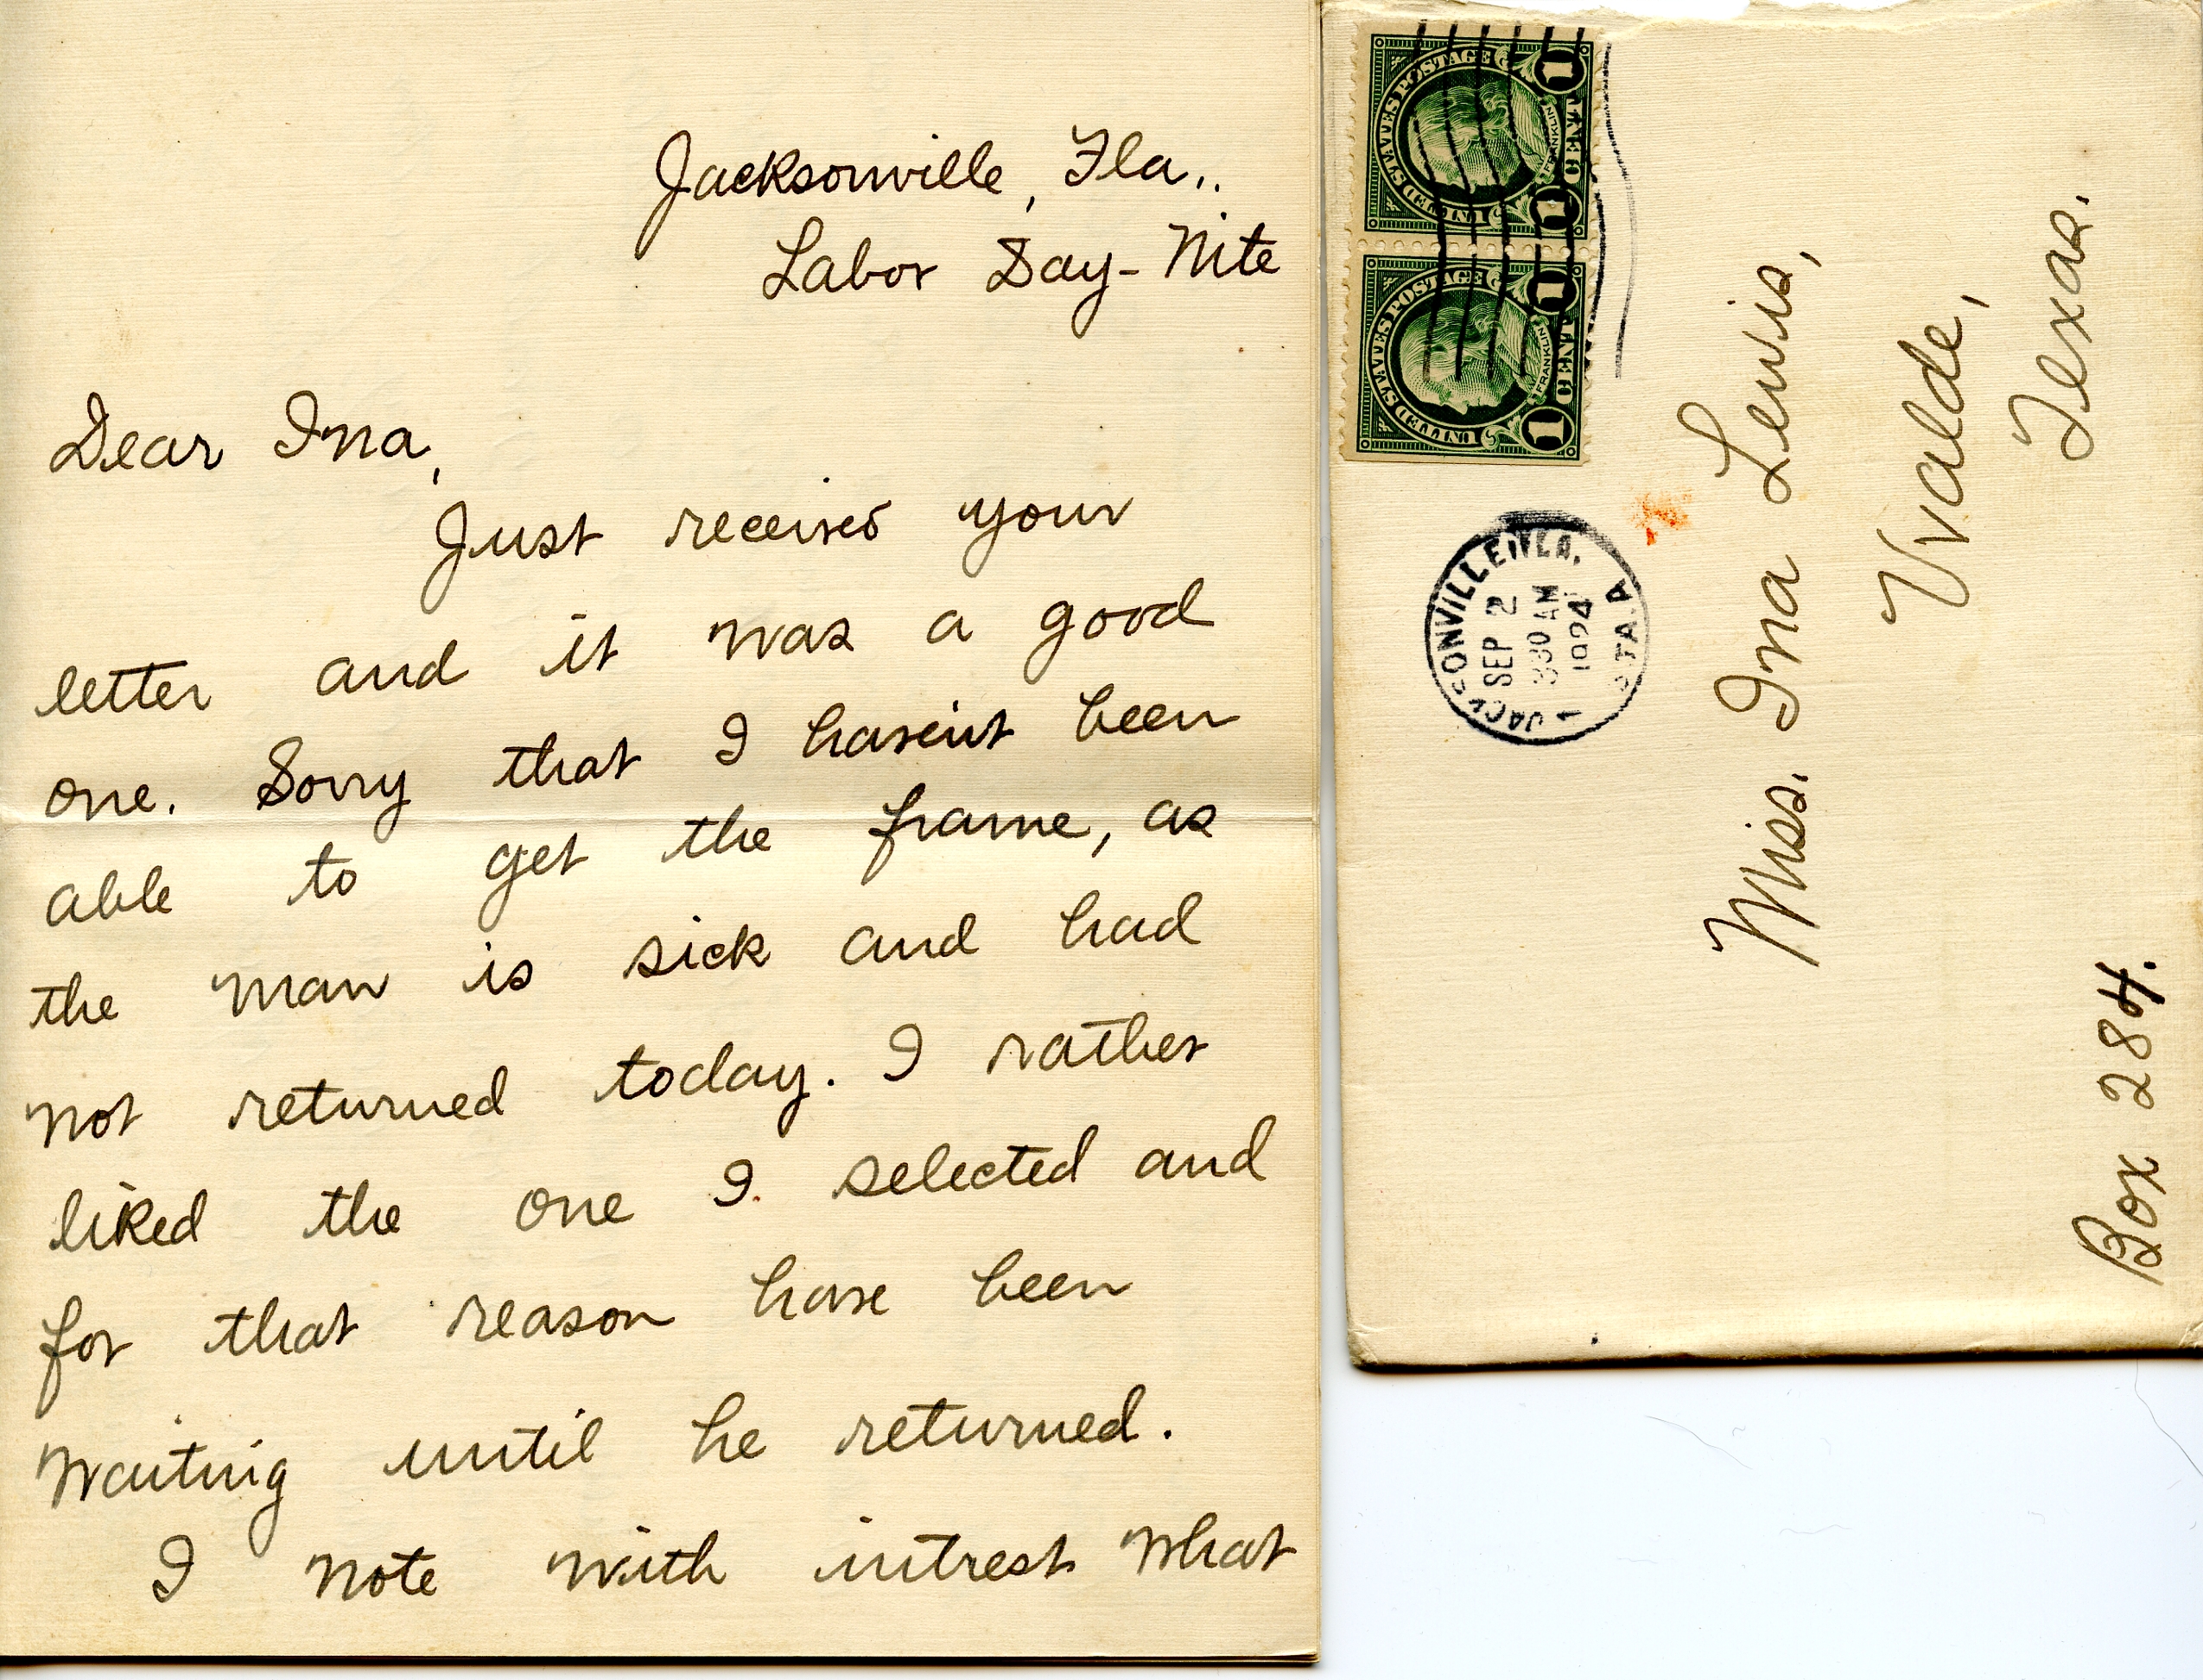 Jacksonville, Fla..
Labor Day - Nite
Dear Ina,
Just received your
letter and it was a good
one. Sorry that I haven't been
able to get the frame, as
the man is sick and had
not returned today. I rather
liked the one I selected and
for that reason have been
waiting until he returned.
I note with intrest what
UNITED STATES POSTAGE
FRANKLIN
1 CENT 1
UNITED STATES POSTAGE
FRANKLIN
1 CENT 1
JACKSONVILLE, FLA.
SEP 2
330 AM
1924
STA. A
1
Miss. Ina Lewis,
Uvalde,
Texas.
Box 284.